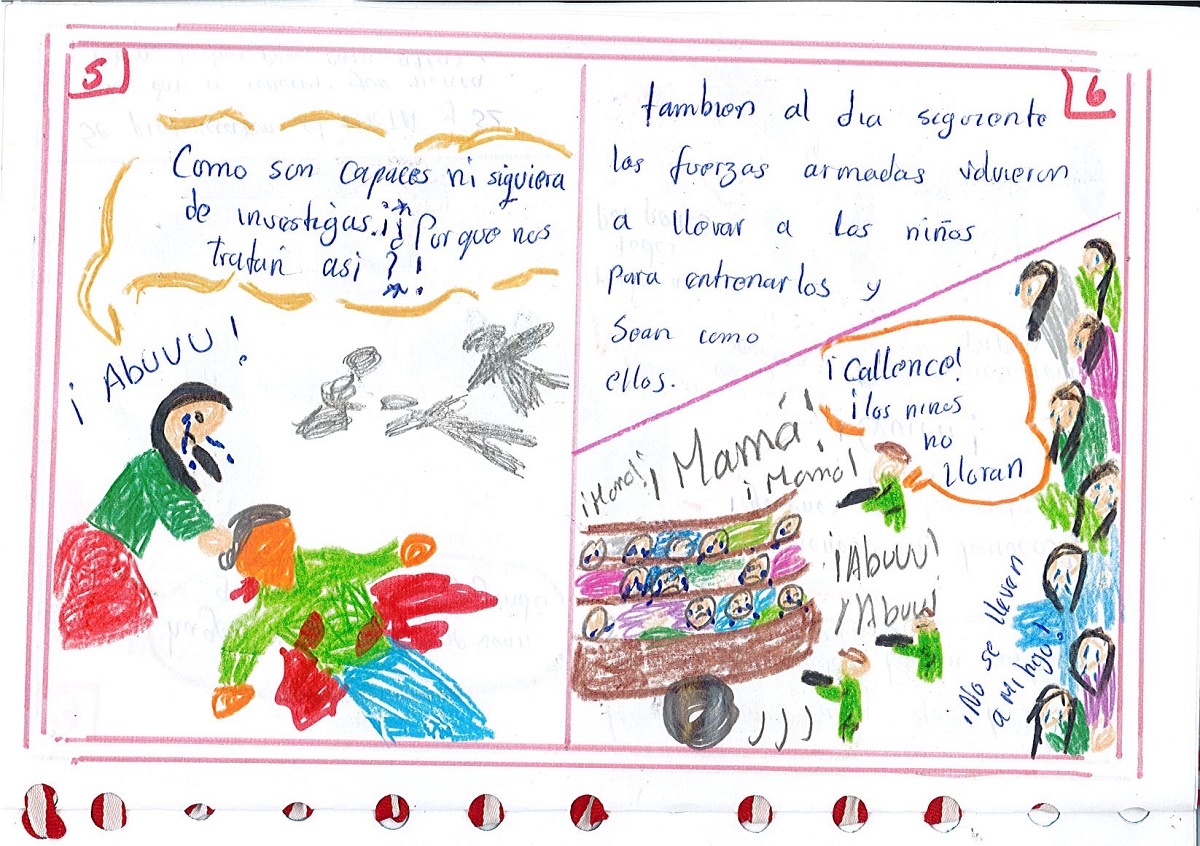 5
Como son capaces ni siquiera
de investigas.¡¡ Porque nos
tratan asi ?!
¡Abuuu!
6
tambien al dia siguiente
las fuerzas armadas volvieron
a llevar a los niños
para entrenarlos y
Sean como
ellos.
¡Callence!
¡los niños
no
lloran
¡Mamá!
¡Mamá!
¡Mama!
¡Abuuu!
¡Abuu!
¡No se lleven
a mi hijo!